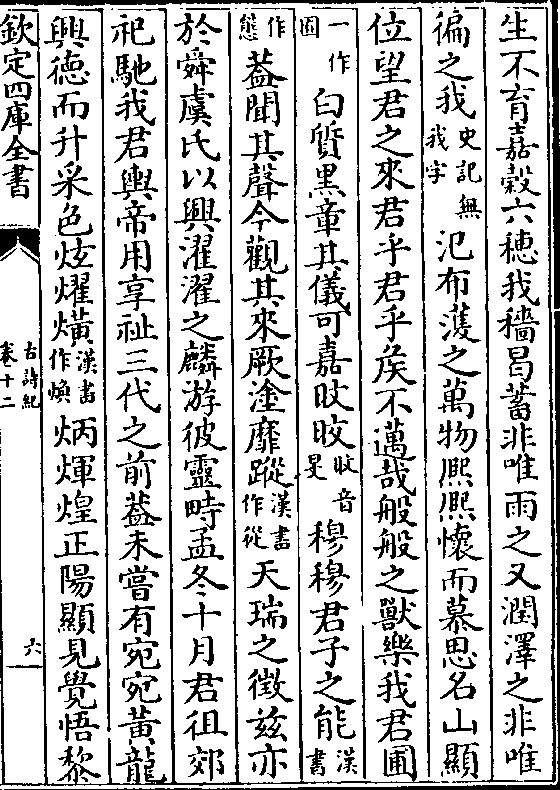 生不育嘉穀六穗我穡曷蓄非唯雨之又潤澤之非唯
徧之我史記無我字氾布濩之萬物熈熈懷而慕思名山顯
位望君之來君乎君乎矦不邁哉般般之獸樂我君圃
一作囿白質黑章其儀可嘉旼旼旼音旻穆穆君子之能漢書
作態葢聞其聲今觀其來厥塗靡蹤漢書作從天瑞之徴兹亦
於舜虞氏以興濯濯之麟游彼靈畤孟冬十月君徂郊
祀馳我君輿帝用享祉三代之前葢未嘗有宛宛黄龍
興德而升采色炫燿熿漢書作煥炳煇煌正陽顯見覺悟黎
欽定四庫全書
古詩紀
卷十二
六